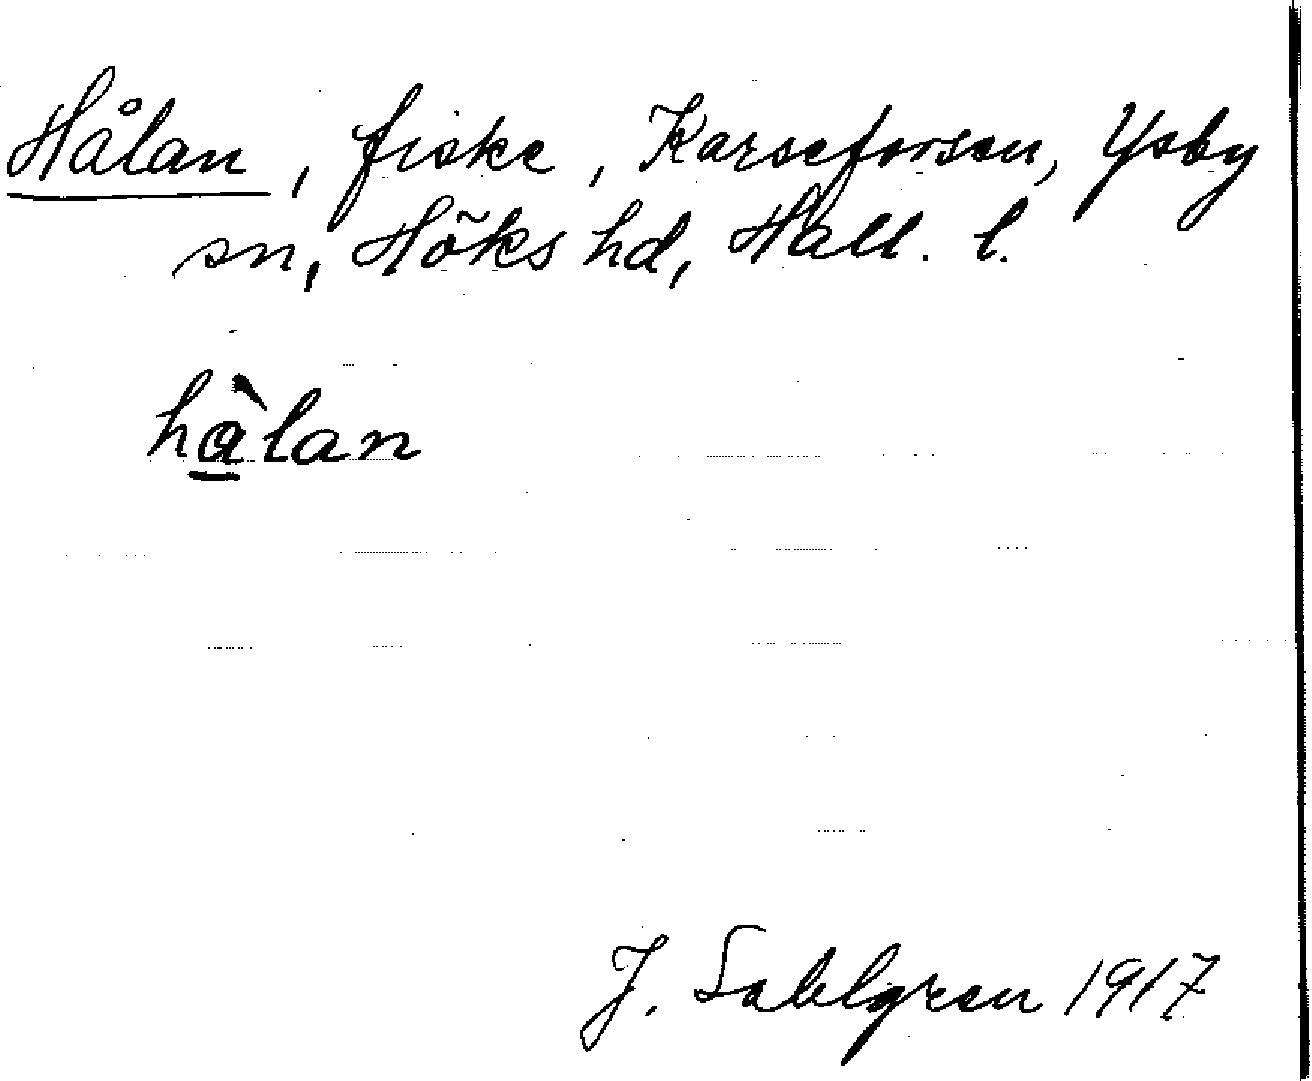 Hålan, fiske, Karseforsen, Ysby
sn, Höks hd, Hall. l.
hàlan
J. Sahlgren 1917